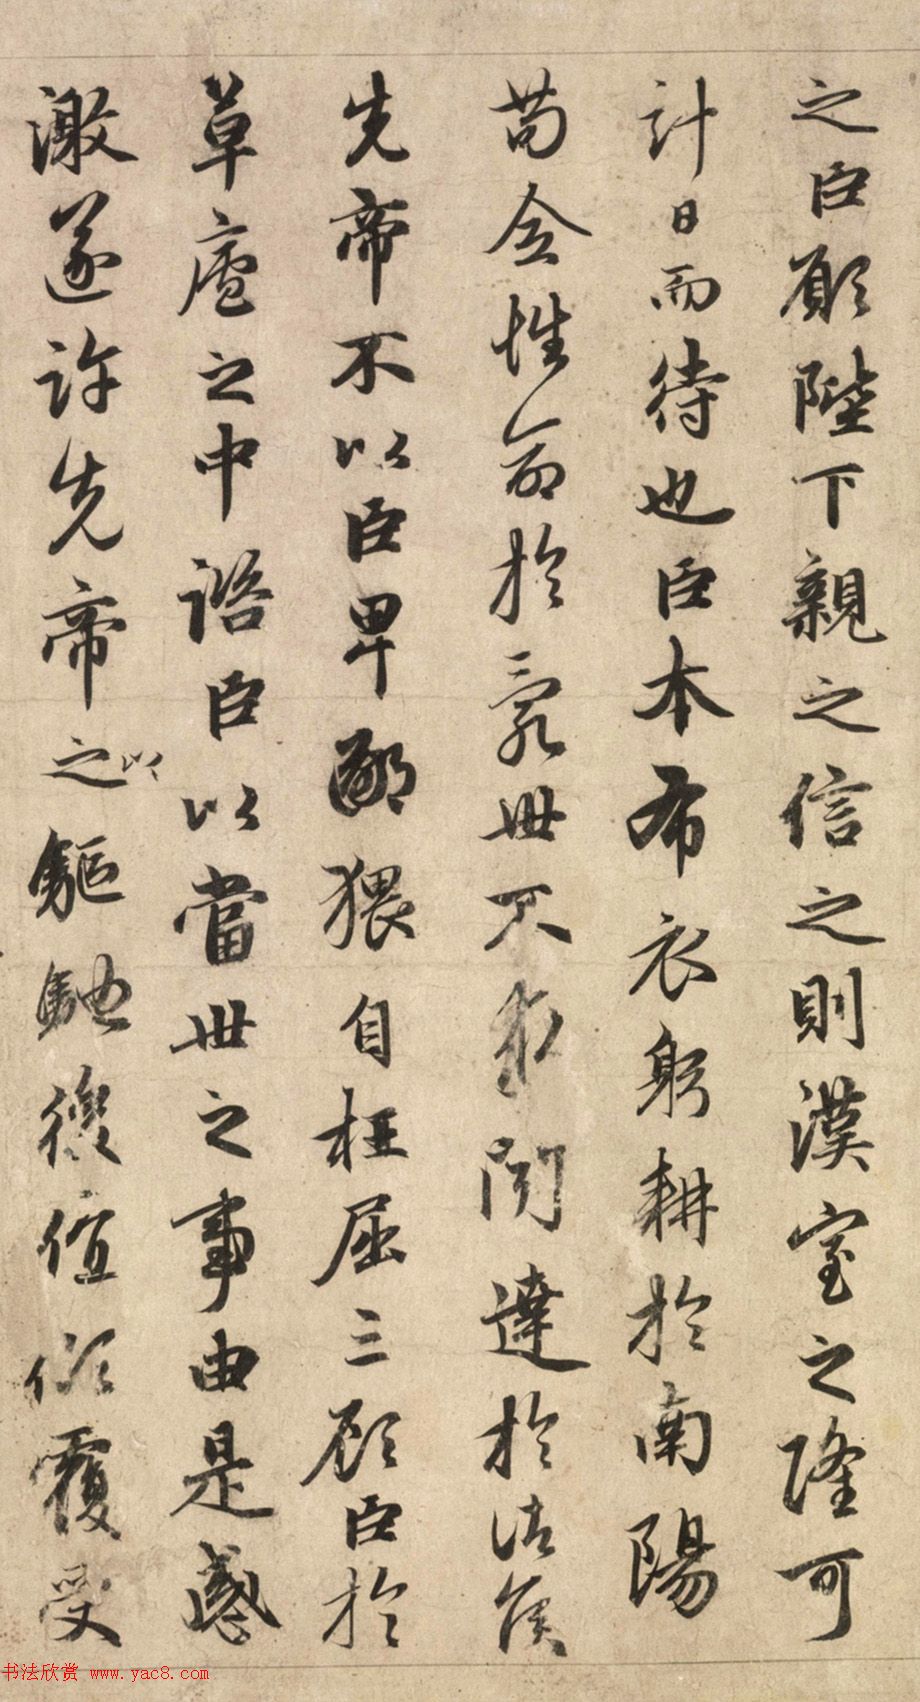 之臣願陛下親之信之則漢室之隆可
計日而待也臣本布衣躬耕於南陽
苟全性命於亂世不求聞達於諸侯
先帝不以臣卑鄙猥自枉屈三顧臣於
草廬之中諮臣以當世之事由是感
激遂許先帝之以驅馳後值傾覆受
书法欣赏 www.yac8.com